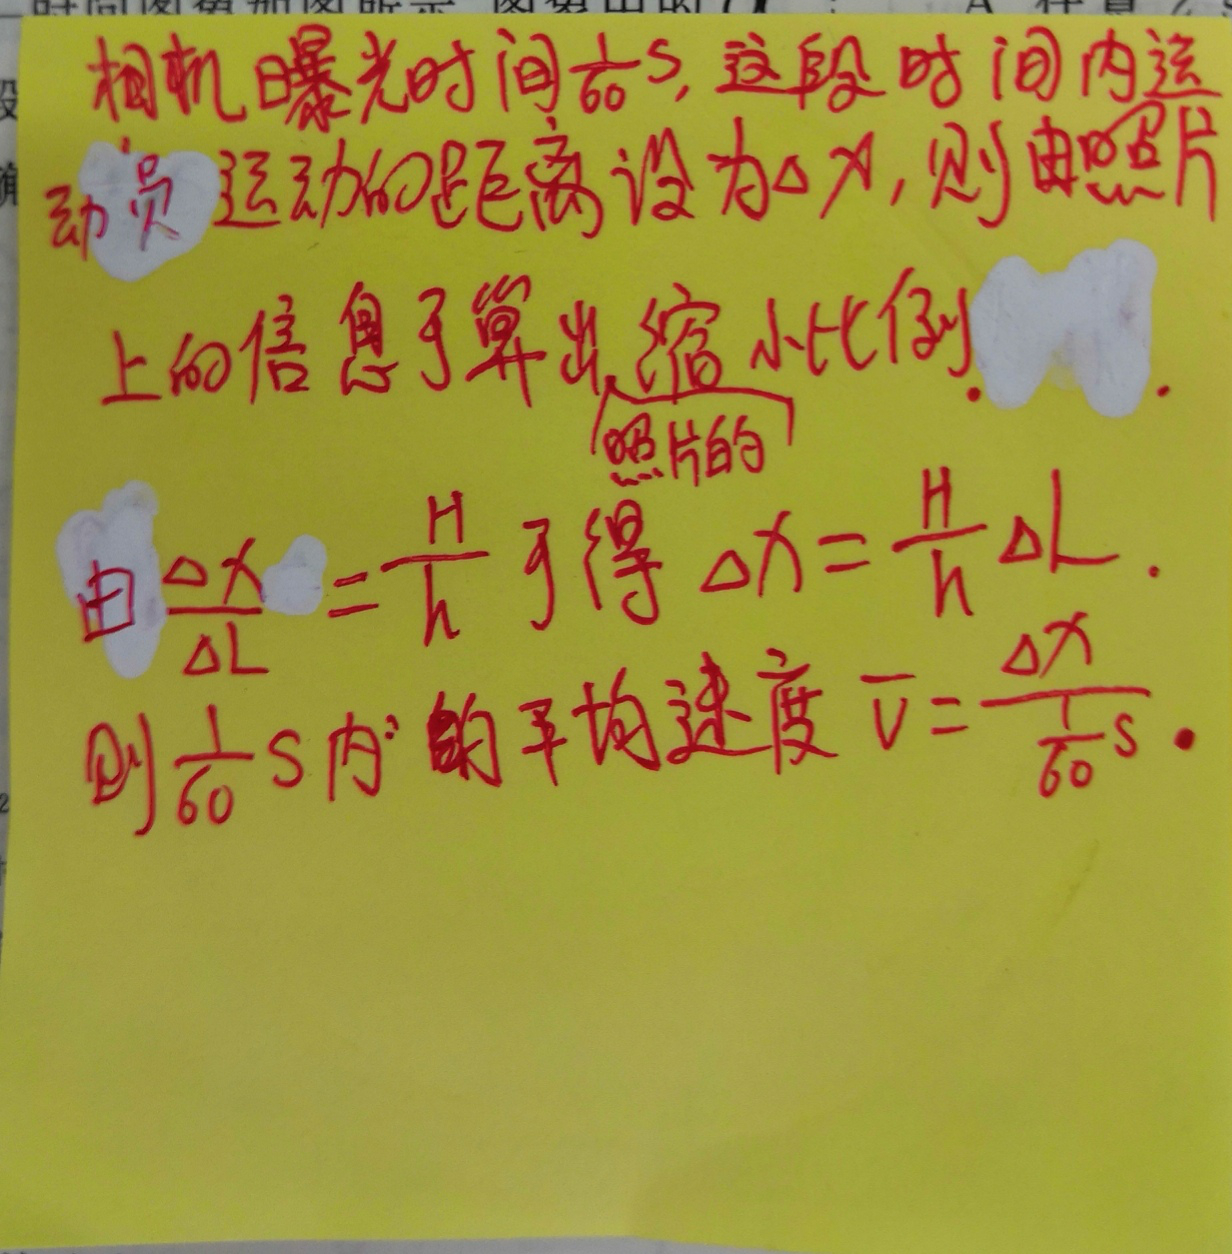 时间图象如图所示 图象中的
相机曝光时间1/60 s,这段时间内运
动员运动的距离设为Δx,则由照片
上的信息可算出缩小比例.
照片的
由Δx/ΔL=H/h可得Δx=H/hΔL.
则1/60 s内的平均速度v̄=Δx/(1/60 s).